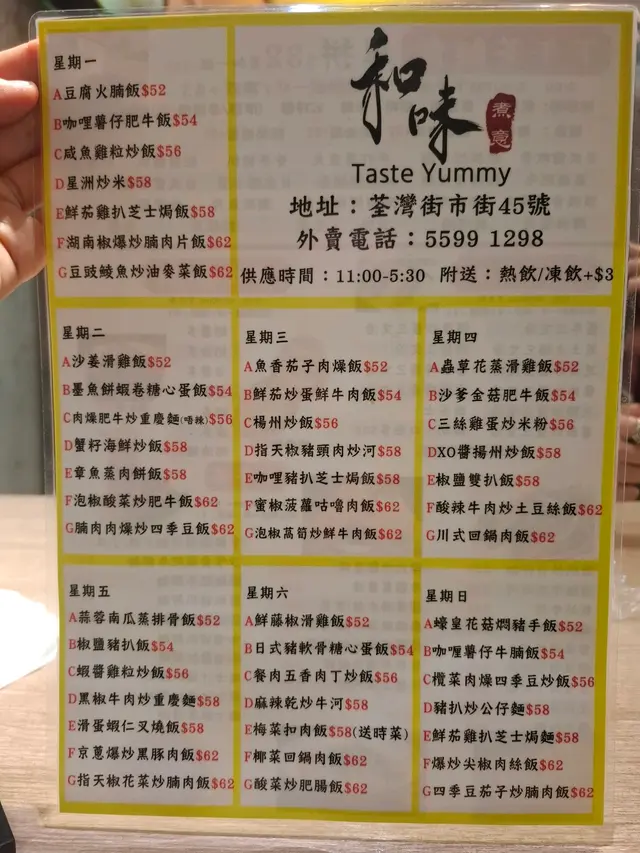 星期一
A豆腐火腩飯$52
B咖哩薯仔肥牛飯$54
C咸魚雞粒炒飯$56
D星洲炒米$58
E鮮茄雞扒芝士焗飯$58
F湖南椒爆炒腩肉片飯$62
G豆豉鯪魚炒油麥菜飯$62
和味
煮意
Taste Yummy
地址：荃灣街市街45號
外賣電話：5599 1298
供應時間：11:00-5:30 附送：熱飲/凍飲+$3
星期二
A沙姜滑雞飯$52
B墨魚餅蝦卷糖心蛋飯$54
C肉燥肥牛炒重慶麵(唔辣)$56
D蟹籽海鮮炒飯$58
E章魚蒸肉餅飯$58
F泡椒酸菜炒肥牛飯$62
G腩肉肉燥炒四季豆飯$62
星期三
A魚香茄子肉燥飯$52
B鮮茄炒蛋鮮牛肉飯$54
C楊州炒飯$56
D指天椒豬頸肉炒河$58
E咖哩豬扒芝士焗飯$58
F蜜椒菠蘿咕嚕肉飯$62
G泡椒萵筍炒鮮牛肉飯$62
星期四
A蟲草花蒸滑雞飯$52
B沙爹金菇肥牛飯$54
C三絲雞蛋炒米粉$56
DXO醬揚州炒飯$58
E椒鹽雙扒飯$58
F酸辣牛肉炒土豆絲飯$62
G川式回鍋肉飯$62
星期五
A蒜蓉南瓜蒸排骨飯$52
B椒鹽豬扒飯$54
C蝦醬雞粒炒飯$56
D黑椒牛肉炒重慶麵$58
E滑蛋蝦仁叉燒飯$58
F京蔥爆炒黑豚肉飯$62
G指天椒花菜炒腩肉飯$62
星期六
A鮮藤椒滑雞飯$52
B日式豬軟骨糖心蛋飯$54
C餐肉五香肉丁炒飯$56
D麻辣乾炒牛河$58
E梅菜扣肉飯$58(送時菜)
F椰菜回鍋肉飯$62
G酸菜炒肥腸飯$62
星期日
A蠔皇花菇燜豬手飯$52
B咖喱薯仔牛腩飯$54
C欖菜肉燥四季豆炒飯$56
D豬扒炒公仔麵$58
E鮮茄雞扒芝士焗麵$58
F爆炒尖椒肉絲飯$62
G四季豆茄子炒腩肉飯$62